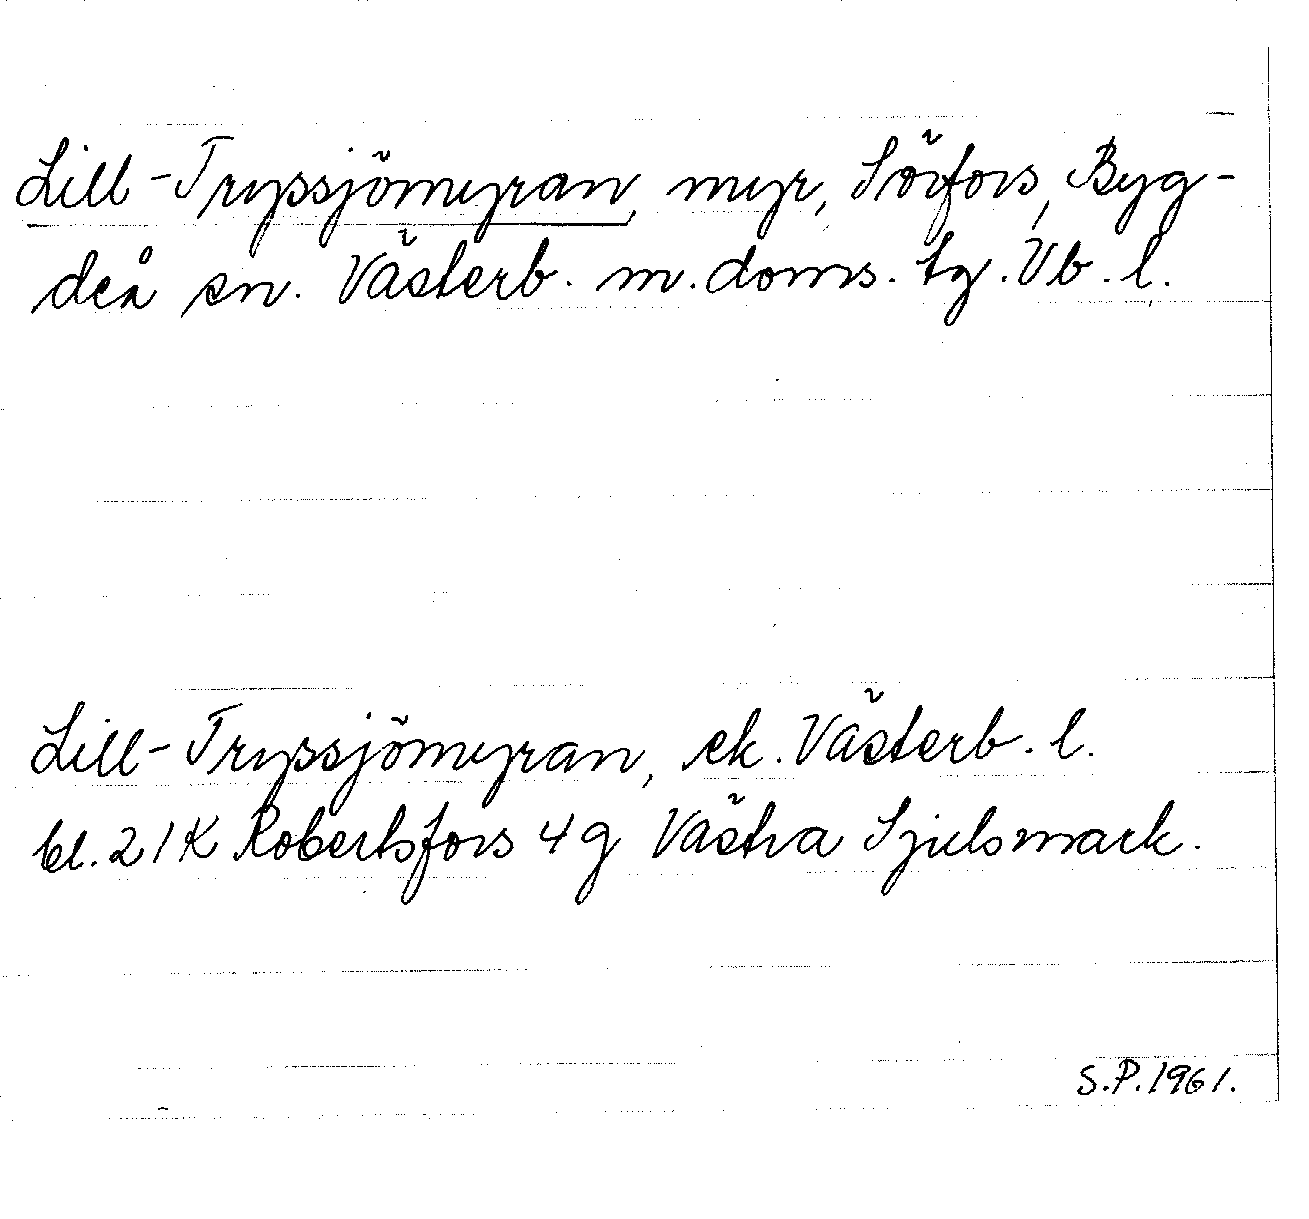 Lill-Tryssjömyran, myr, Sörfors, Byg-
deå sn. Västerb. m. doms. tg. Vb. l.
Lill-Tryssjömyran, ek. Västerb. l.
bl. 21K Robertsfors 4g Västra Sjulsmark.
S.P. 1961.